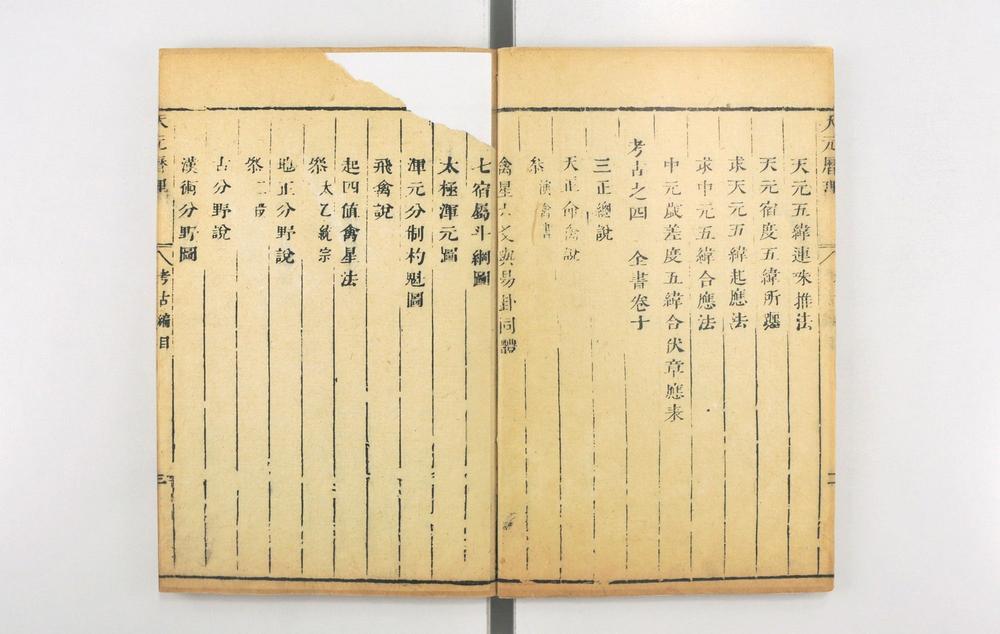 天元曆理
天元五緯連珠推法
天元宿度五緯所躔
求天元五緯起應法
求中元五緯合應法
中元歲差度五緯合伏章應表
考古之四 全書卷十
三正總說
天正命禽說
叅演禽書
禽星六爻與易卦同體
二
七宿屬斗綱圖
太極渾元圖
渾元分制杓魁圖
飛禽說
起四值禽星法
叅太乙統宗
地正分野說
叅二
古分野說
漢術分野圖
天元曆理
考古編目
三